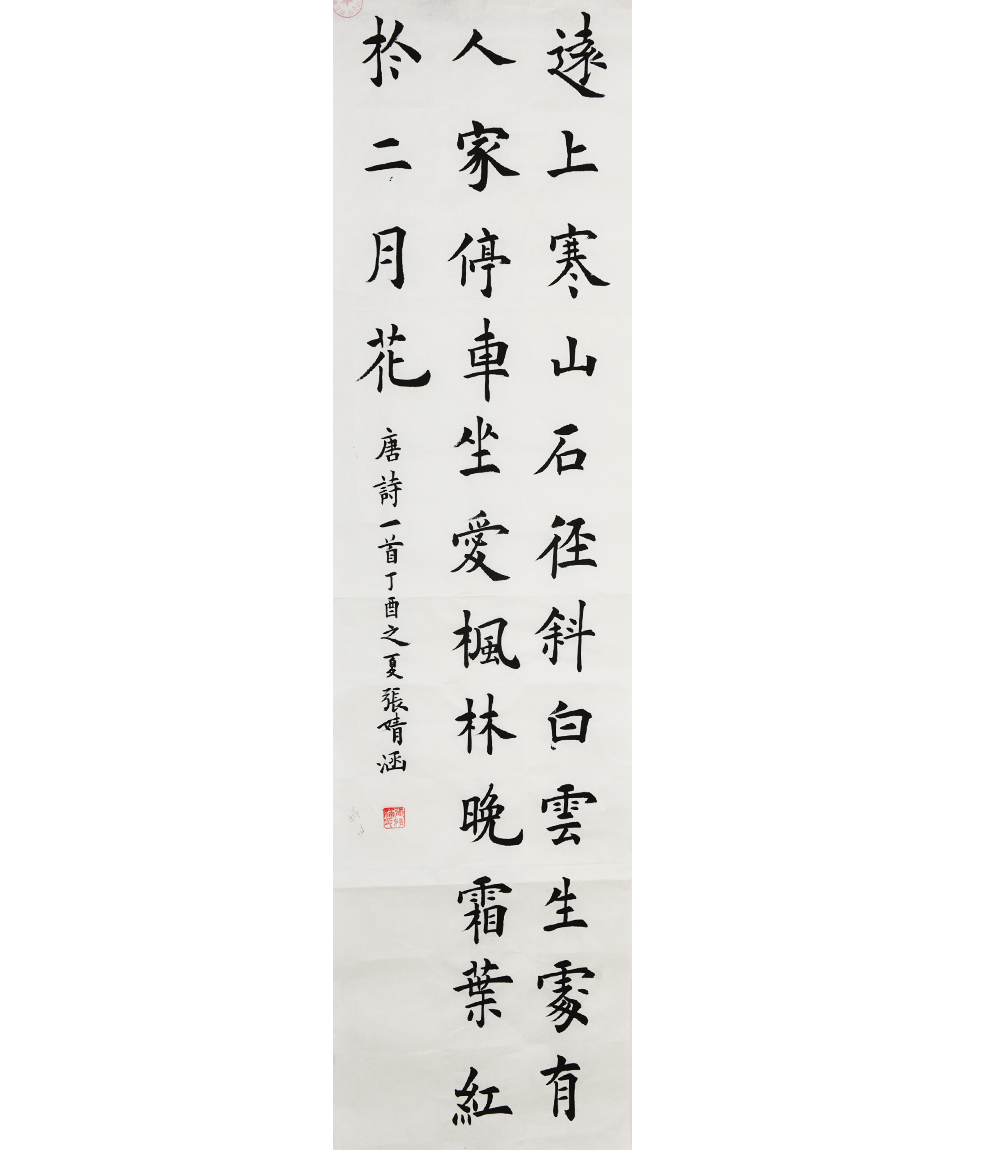 遠上寒山石徑斜白雲生處有
人家停車坐愛楓林晚霜葉紅
於二月花
唐詩一首丁酉之夏張婧涵